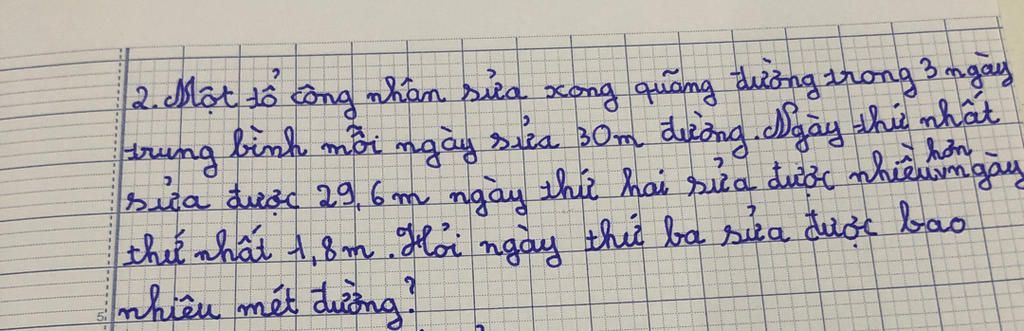 2. Một tổ công nhân sửa xong quãng đường trong 3 ngày
trung bình mỗi ngày sửa 30m đường. Ngày thứ nhất
sửa được 29,6m ngày thứ hai sửa được nhiều hơn ngày
thứ nhất 1,8m. Hỏi ngày thứ ba sửa được bao
nhiêu mét đường?